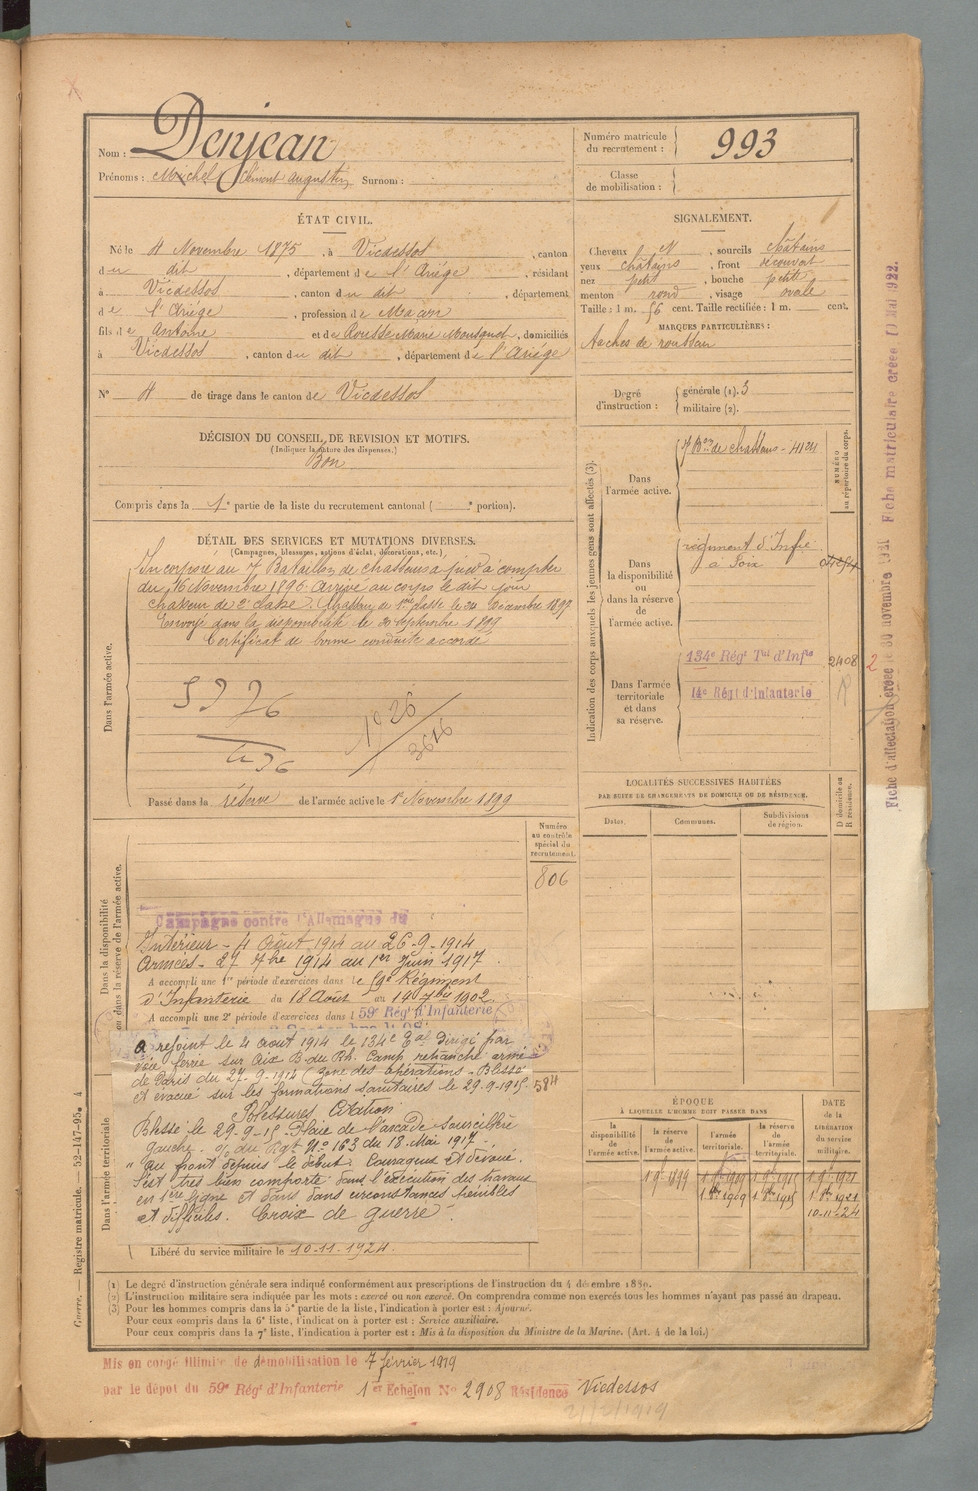 Nom : Denjean
Prénoms : Michel Clément augustin Surnom :
Numéro matricule du recrutement : 993
Classe de mobilisation :
ÉTAT CIVIL.
Né le 4 Novembre 1875, à Vicdessos, canton
du dit, département de l'Ariége, résidant
à Vicdessos, canton du dit, département
de l'Ariége, profession de Maçon
fils de Antoine et de Rousse Marie, domiciliés
à Vicdessos, canton du dit, département de l'Ariége
N° 4 de tirage dans le canton de Vicdessos
SIGNALEMENT.
Cheveux N, sourcils châtains
yeux châtains, front découvert
nez petit, bouche petite
menton rond, visage ovale
Taille : 1 m. 56 cent. Taille rectifiée : 1 m. cent.
MARQUES PARTICULIÈRES :
Taches de rousseur
Degré d'instruction :
générale (1). 3
militaire (2).
DÉCISION DU CONSEIL DE REVISION ET MOTIFS.
(Indiquer la nature des dispenses.)
Bon
Compris dans la 1e partie de la liste du recrutement cantonal ( e portion).
DÉTAIL DES SERVICES ET MUTATIONS DIVERSES.
(Campagnes, blessures, actions d'éclat, décorations, etc.)
Dans l'armée active.
Incorporé au 7 Bataillon de chasseurs à pied à compter
du 16 Novembre 1896. Arrivé au corps le dit jour
chasseur de 2e classe. Chasseur de 1ère classe le 24 Décembre 1897
Envoyé dans la disponibilité le 20 septembre 1899
Certificat de bonne conduite accordé
1926
3616
Passé dans la réserve de l'armée active le 1er Novembre 1899
Indication des corps auxquels les jeunes gens sont affectés (3).
NUMÉRO au répertoire du corps.
Dans l'armée active.
7 Bon de chasseurs - 4124
Dans la disponibilité ou dans la réserve de l'armée active.
régiment d'Infie
à Foix
Dans l'armée territoriale et dans sa réserve.
134e Régt Tal d'Infie 2408 2
14e Régt d'Infanterie
Fiche d'affectation créée le 30 novembre 1921 Fiche matriculaire créée Mai 1922.
LOCALITÉS SUCCESSIVES HABITÉES
PAR SUITE DE CHANGEMENTS DE DOMICILE OU DE RÉSIDENCE.
Dates. Communes. Subdivisions de région. D domicile ou R résidence.
Numéro au contrôle spécial du recrutement.
806
Dans la disponibilité ou dans la réserve de l'armée active.
Campagne contre l'Allemagne du
Intérieur - 4 Août 1914 au 26-9-1914
Armées - 27 7bre 1914 au 1er Juin 1917.
A accompli une 1re période d'exercices dans le 59e Régiment
d'Infanterie du 18 Août au 14 7bre 1902
A accompli une 2e période d'exercices dans l 59e Régt d'Infanterie
Dans l'armée territoriale
A rejoint le 4 aout 1914 le 134e Eal Dirigé par
voie ferrée sur Aix B. du Rh. Camp retranché armée
de Paris du 27-9-1914 (zone des opérations - Blessé
et évacué sur les formations sanitaires le 29-9-1915 584
Blessures Citation
Blessé le 29-9-15. Plaie de l'arcade sourcilière
gauche. o/ du Rgt N° 163 du 18 Mai 1917 -
" au front depuis le début. Courageux et dévoué.
S'est très bien comporté dans l'exécution des travaux
en 1ère ligne et dans dans circonstances pénibles
et difficiles. Croix de guerre.
Libéré du service militaire le 10-11-1924.
ÉPOQUE
À LAQUELLE L'HOMME DOIT PASSER DANS
la disponibilité de l'armée active. la réserve de l'armée active. l'armée territoriale. la réserve de l'armée territoriale.
DATE de la LIBÉRATION du service militaire.
1 9bre 1899 1 9bre 1909 1 9bre 1915 1 9bre 1921
1 8bre 1909 1 8bre 1915 1 8bre 1921
10-11-24
(1) Le degré d'instruction générale sera indiqué conformément aux prescriptions de l'instruction du 4 décembre 1889.
(2) L'instruction militaire sera indiquée par les mots : exercé ou non exercé. On comprendra comme non exercés tous les hommes n'ayant pas passé au drapeau.
(3) Pour les hommes compris dans la 5e partie de la liste, l'indication à porter est : Ajourné.
Pour ceux compris dans la 6e liste, l'indication à porter est : Service auxiliaire.
Pour ceux compris dans la 7e liste, l'indication à porter est : Mis à la disposition du Ministre de la Marine. (Art. 4 de la loi.)
Guerre. — Registre matricule. — 52-147-95. 4
Mis en congé illimité de démobilisation le 7 février 1919
par le dépot du 59e Régt d'Infanterie 1er Echelon N° 2908 Résidence Vicdessos
21/2/1919